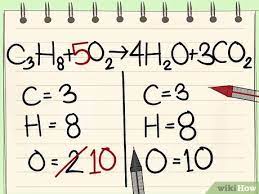 C₃H₈+5O₂→4H₂O+3CO₂
C=3
H=8
O=2 10
C=3
H=8
O=10
wikiHow